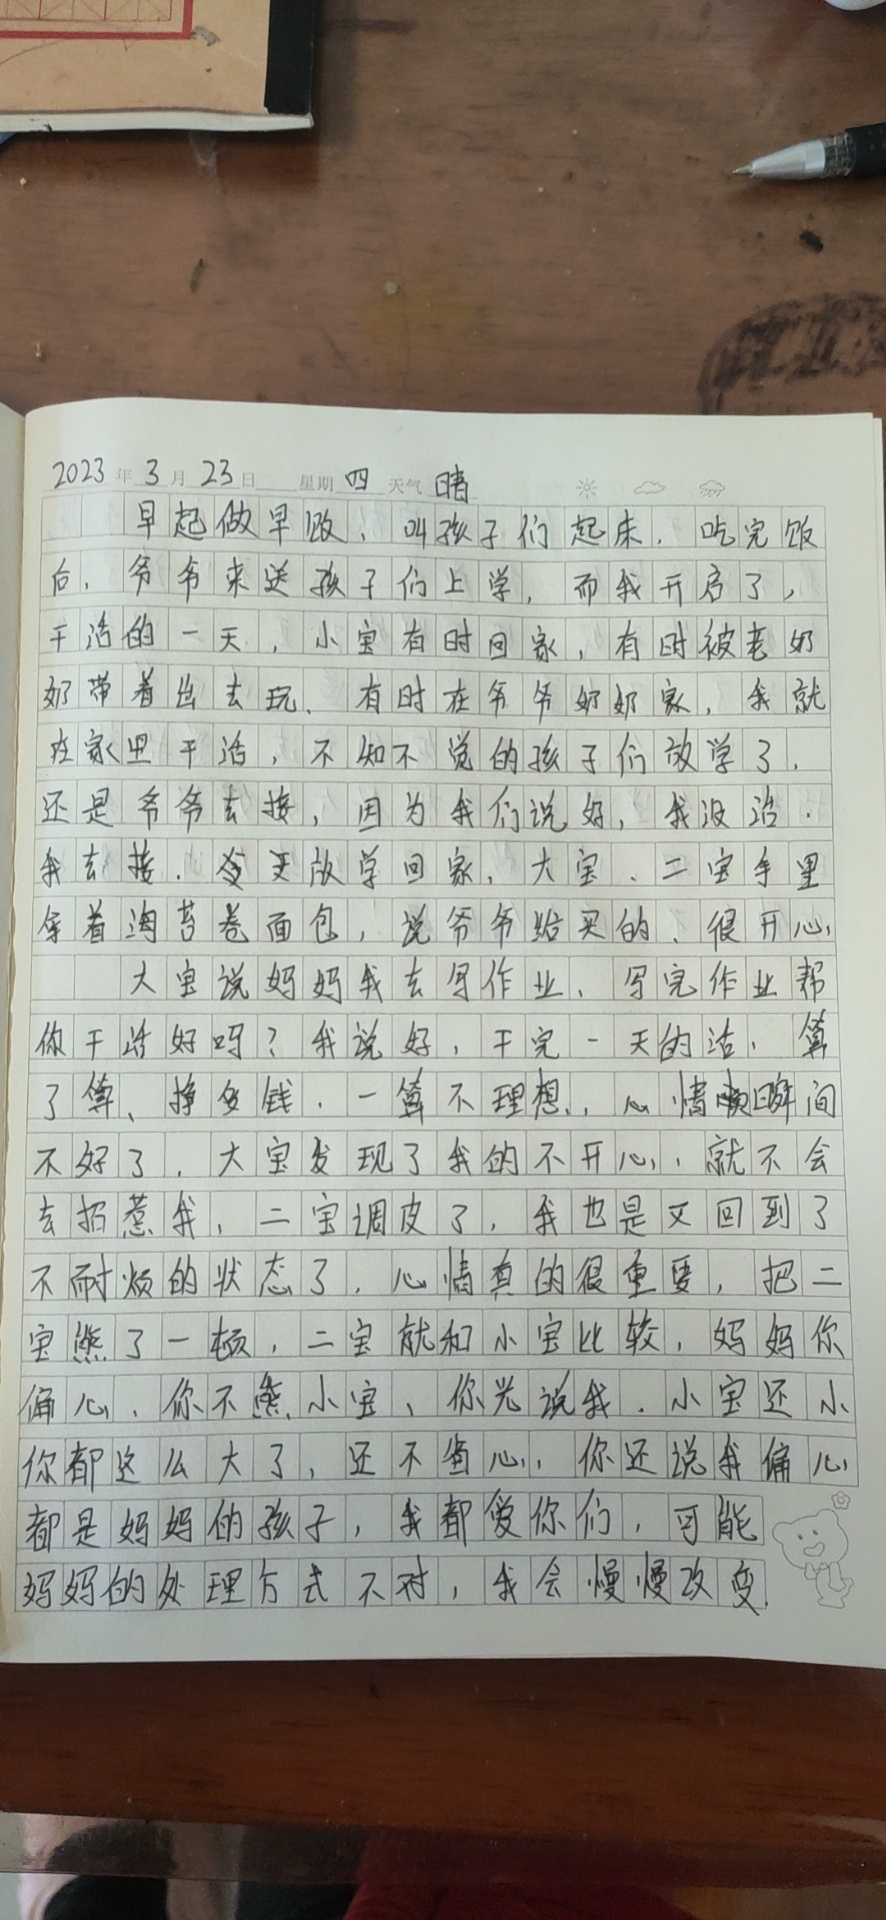 2023年3月23日 星期四 天气 晴
早起做早饭、叫孩子们起床，吃完饭
后，爷爷来送孩子们上学，而我开启了，
干活的一天，小宝有时回家，有时被老奶
奶带着出去玩、有时在爷爷奶奶家，我就
在家里干活，不知不觉的孩子们放学了，
还是爷爷去接，因为我们说好，我没活．
我去接．放学回家，大宝、二宝手里
拿着海苔卷面包，说爷爷给买的、很开心，
大宝说妈妈我去写作业、写完作业帮
你干活好吗？我说好，干完一天的活，算
了算、挣多钱．一算不理想，心情瞬间
不好了，大宝发现了我的不开心，就不会
去招惹我，二宝调皮了，我也是又回到了
不耐烦的状态了，心情真的很重要，把二
宝熊了一顿，二宝就和小宝比较，妈妈你
偏心、你不熊小宝、你光说我．小宝还小
你都这么大了，还不省心，你还说我偏心
都是妈妈的孩子，我都爱你们，可能
妈妈的处理方式不对，我会慢慢改变．